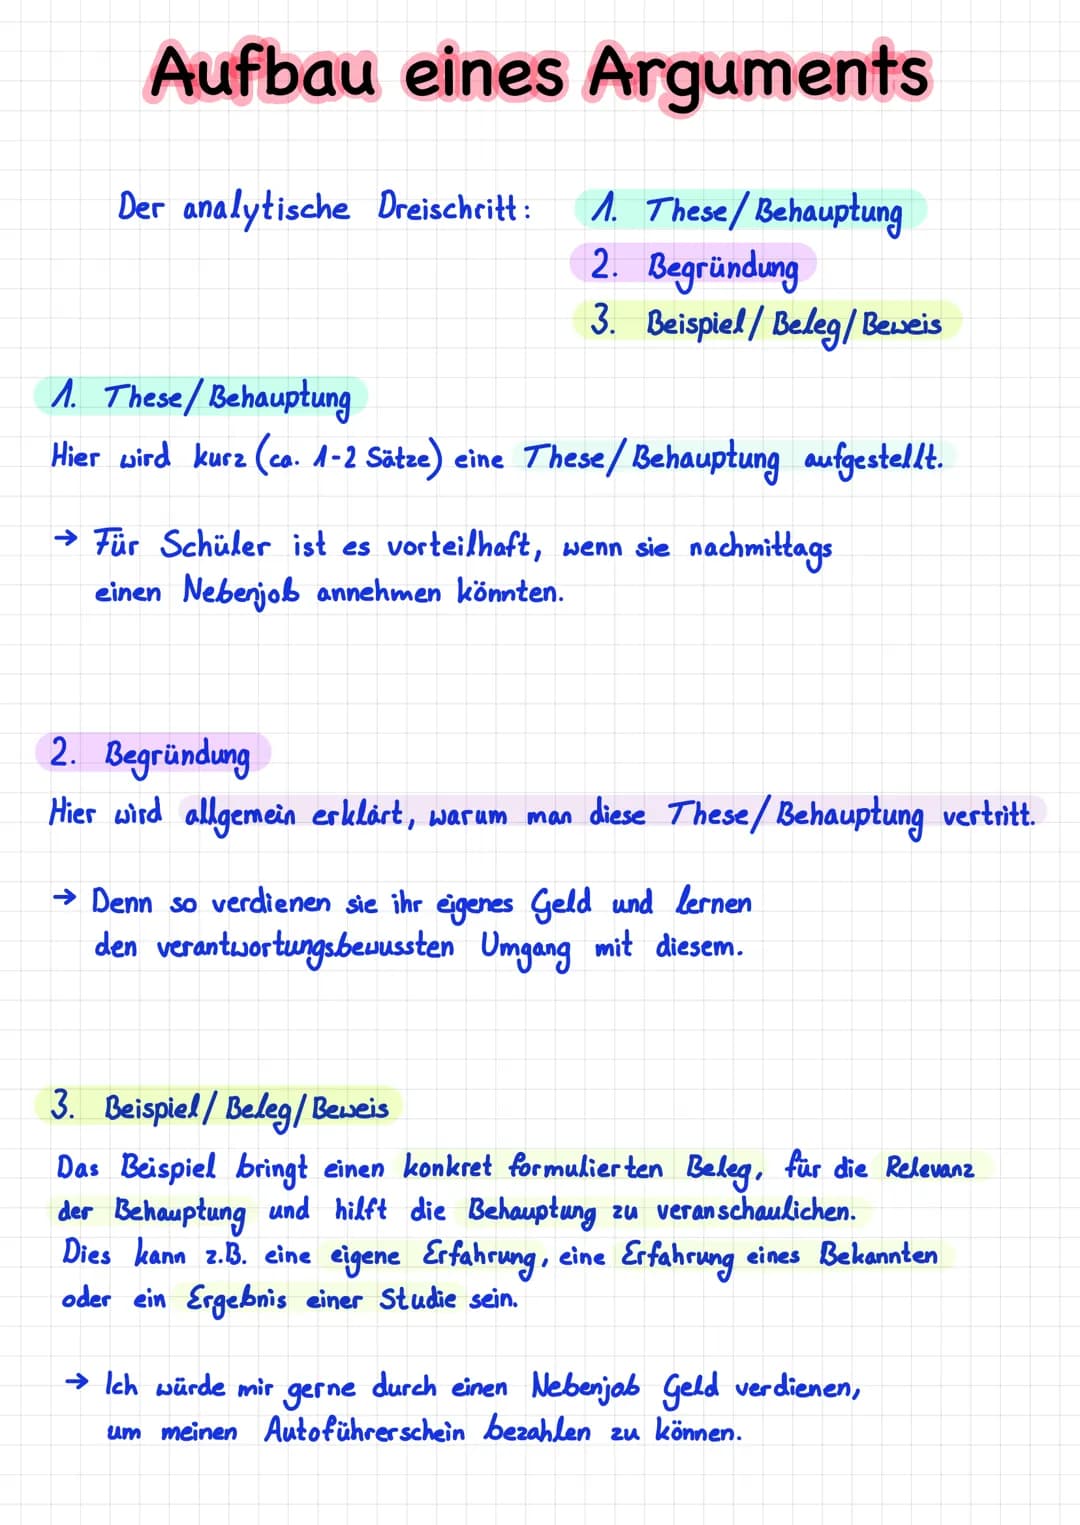 Aufbau eines Arguments
Der analytische Dreischritt: 1. These/Behauptung
2. Begründung
3. Beispiel/Beleg/Beweis
1. These/Behauptung
Hier wird kurz (ca. 1-2 Sätze) eine These/Behauptung aufgestellt.
→ Für Schüler ist es vorteilhaft, wenn sie nachmittags
einen Nebenjob annehmen könnten.
2. Begründung
Hier wird allgemein erklärt, warum man diese These/Behauptung vertritt.
→ Denn so verdienen sie ihr eigenes Geld und lernen
den verantwortungsbewussten Umgang mit diesem.
3. Beispiel/Beleg/Beweis
Das Beispiel bringt einen konkret formulierten Beleg, für die Relevanz
der Behauptung und hilft die Behauptung zu veranschaulichen.
Dies kann z.B. eine eigene Erfahrung, eine Erfahrung eines Bekannten
oder ein Ergebnis einer Studie sein.
→ Ich würde mir gerne durch einen Nebenjob Geld verdienen,
um meinen Autoführerschein bezahlen zu können.